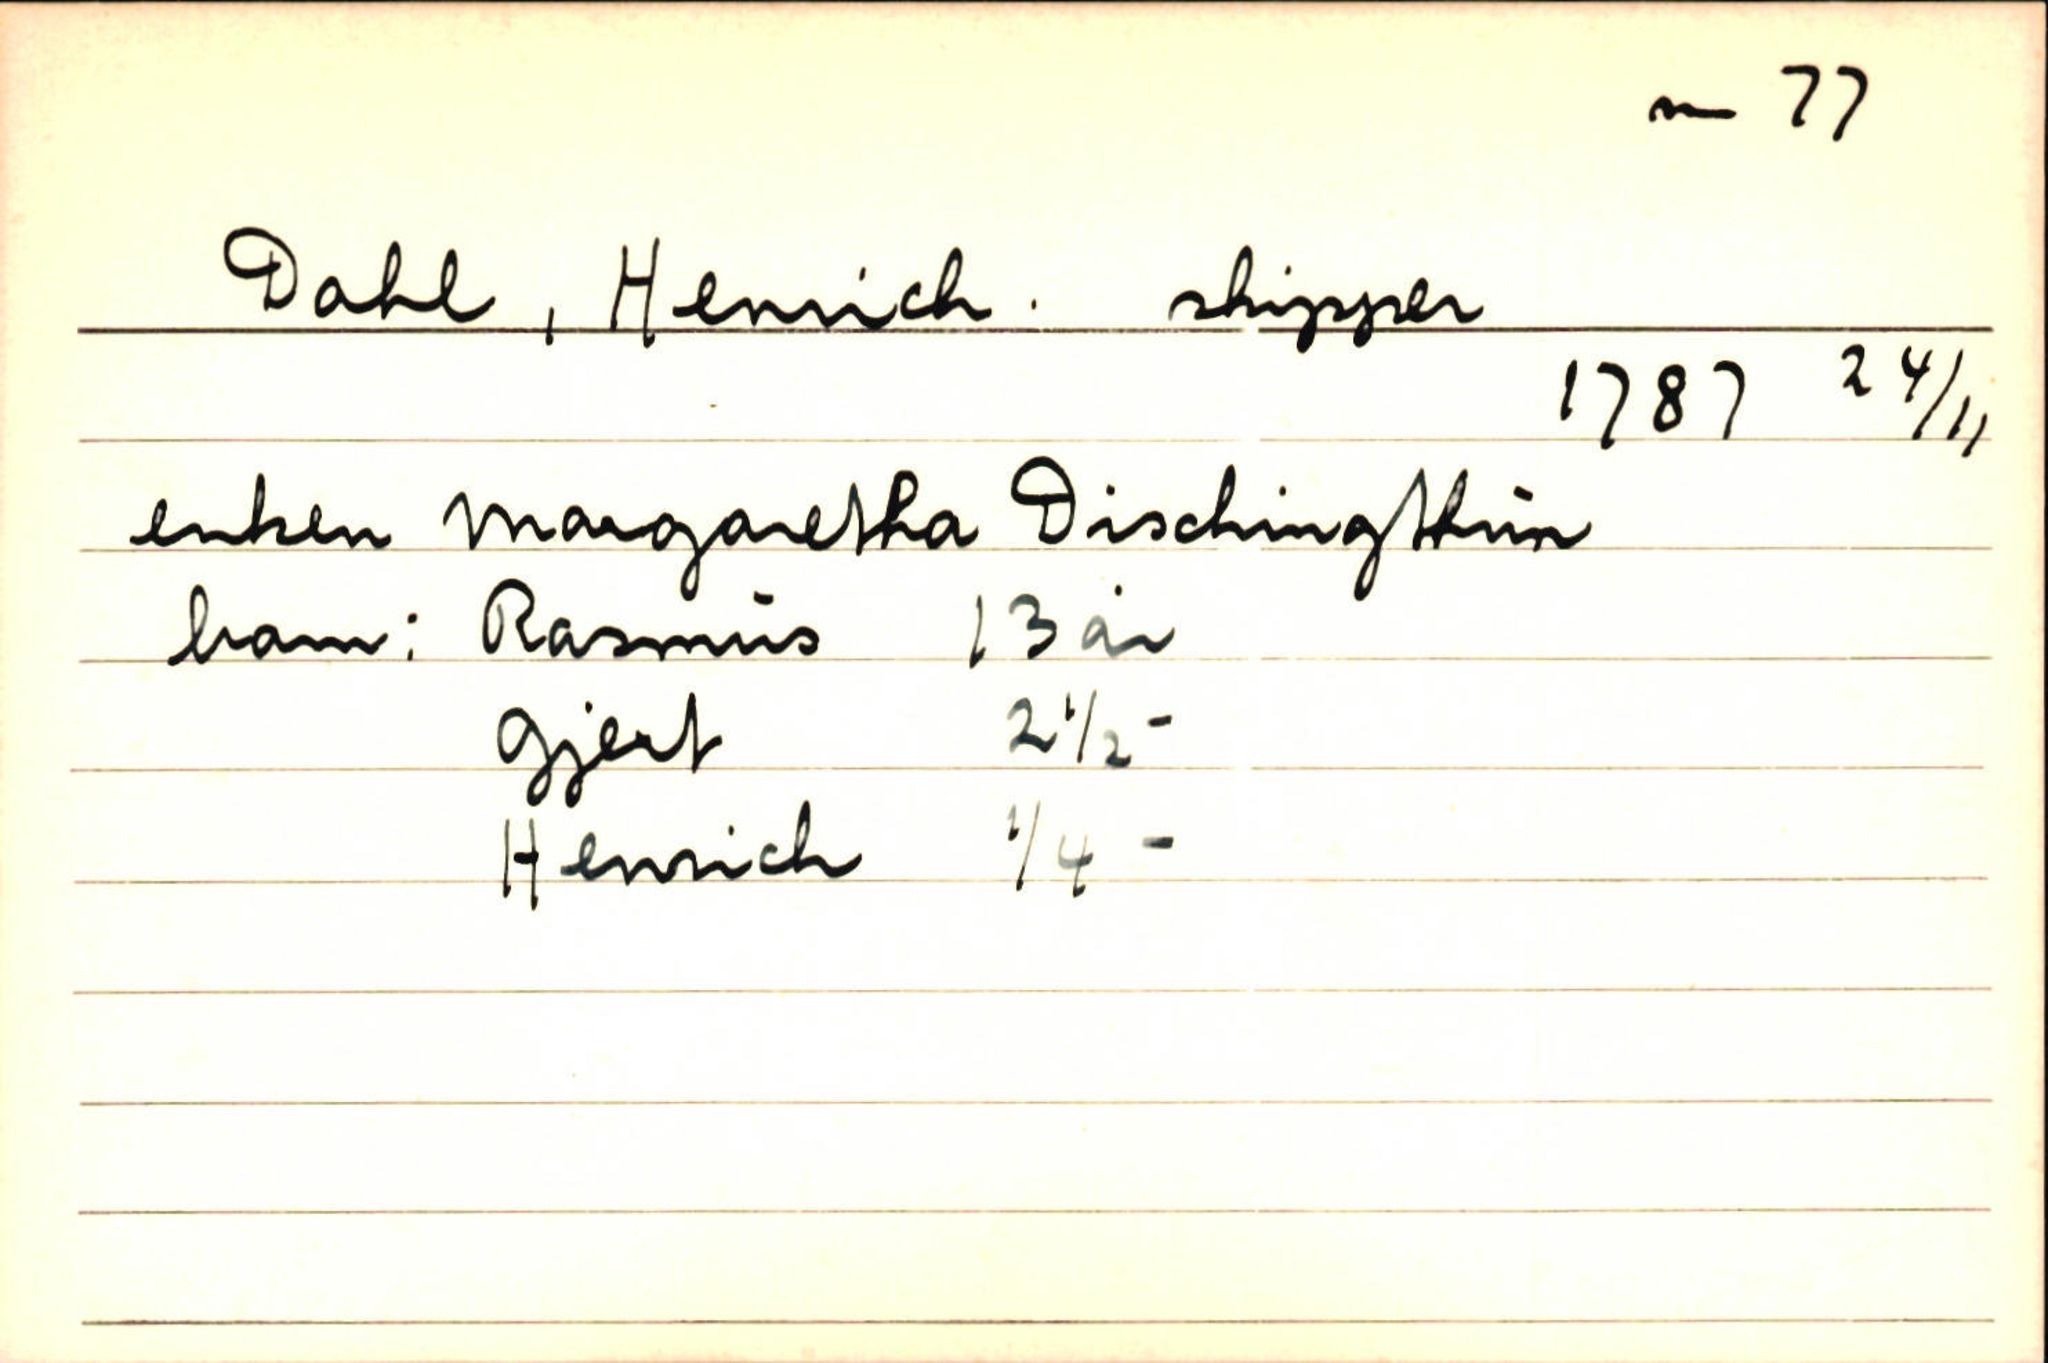 m 77
Dahl, Henrich. skipper
1787 24/11
enken Margaretha Dischingthun
barn: Rasmus 13 år
Gjert 2 1/2 -
Henrich 1/4 -